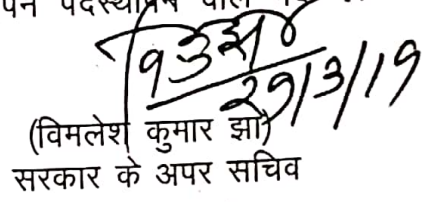 पदस्थापन
29/3/19
(विमलेश कुमार झा)
सरकार के अपर सचिव